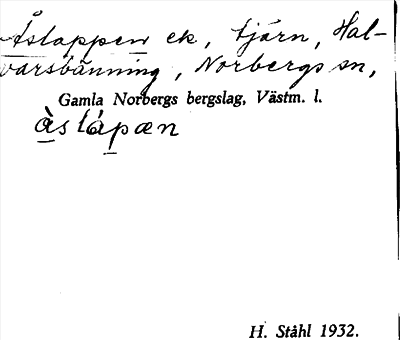 Åslappen ek, tjärn, Hal-
varsbänning, Norbergs sn,
Gamla Norbergs bergslag, Västm. l.
às lápæn
H. Ståhl 1932.